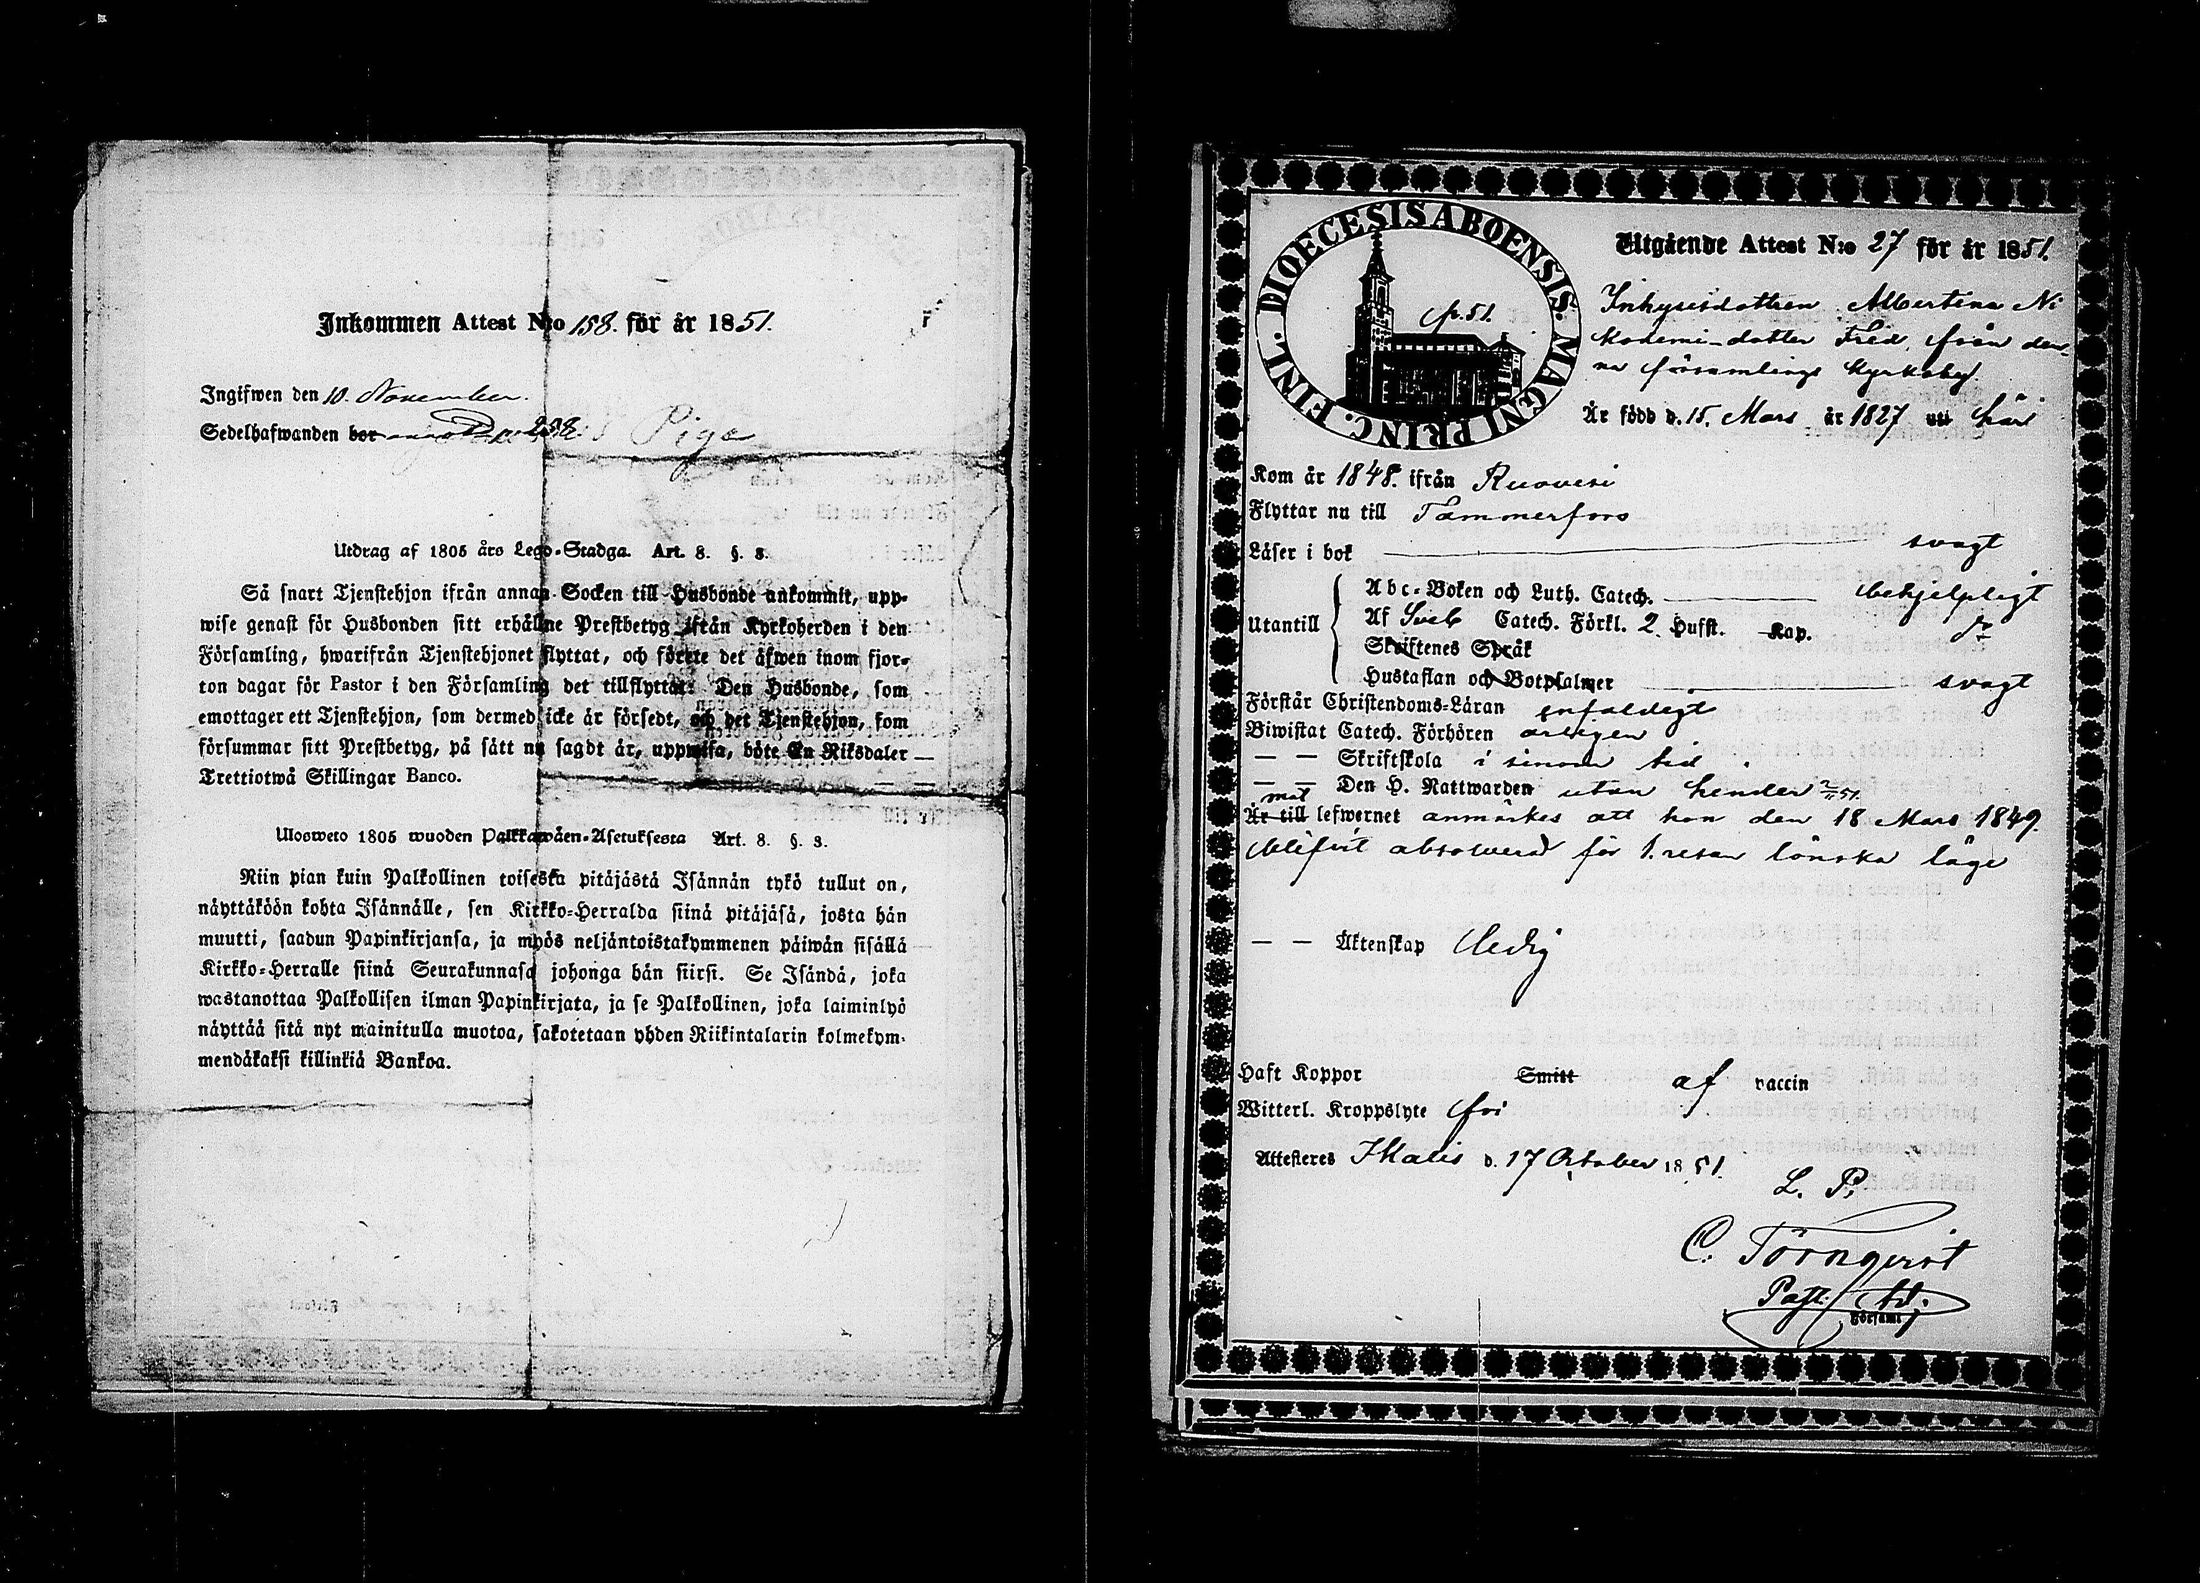 Inkommen Attest N:o 158. för år 1851.
Ingifwen den 10. November.
Sedelhafwanden bor p. 258. Piga
Utdrag af 1805 års Lego-Stadga. Art. 8. §. 3.
Så snart Tjenstehjon ifrån annan Socken till Husbonde ankommit, upp-
wise genast för Husbonden sitt erhållne Prestbetyg ifrån Kyrkoherden i den
Församling, hwarifrån Tjenstehjonet flyttat, och förete det äfwen inom fjor-
ton dagar för Pastor i den Församling det tillflyttat. Den Husbonde, som
emottager ett Tjenstehjon, som dermed icke är försedt, och det Tjenstehjon, som
försummar sitt Prestbetyg, på sätt nu sagdt är, uppwisa, böte En Riksdaler
Trettiotwå Skillingar Banco.
Ulosweto 1805 wuoden Palkkawäen-Asetuksesta Art. 8. §. 3.
Niin pian kuin Palkollinen toisesta pitäjästä Isännän tykö tullut on,
näyttäköön kohta Isännälle, sen Kirkko-Herralda siinä pitäjäsä, josta hän
muutti, saadun Papinkirjansa, ja myös neljäntoistakymmenen päiwän sisällä
Kirkko-Herralle siinä Seurakunnasa johonga hän siirsi. Se Isändä, joka
wastanottaa Palkollisen ilman Papinkirjata, ja se Palkollinen, joka laiminlyö
näyttää sitä nyt mainitulla muotoa, sakotetaan yhden Riikintalarin kolmekym-
mendäkaksi killinkiä Bankoa.
DIOECESIS ABOENSIS. MAGNI PRINC. FINL.
p. 51.
Utgående Attest N:o 27 för år 1851.
Inhysesdottren Albertina Ni
kodemi-dotter Fred, från den-
na församlings Kyrkoby.
Är född d. 15. Mars år 1827 uti här
Kom år 1848. ifrån Ruovesi
Flyttar nu till Tammerfors
Läser i bok svagt
Utantill
Abc-Boken och Luth. Catech. behjelpligt
Af Sveb Catech. Förkl. 2 Hufst. Kap. dº
Skriftenes Språk
Hustaflan och Botpsalmer svagt
Förstår Christendoms-Läran enfaldigt
Biwistat Catech. Förhören årligen
— — Skriftskola i sinom tid.
— — Den H. Nattwarden utan hinder 2/11 51.
mot
Är till lefwernet anmärkes att hon den 18 Mars 1849.
blifvit absolverad för 1. resan lönska läge
— — Äktenskap ledig
Haft Koppor Smitt af vaccin
Witterl. Kroppslyte fri
Attesteras Ikalis d. 17 October 1851.
L. P.
C. Törnqvist
Past. Adj.
Församl.